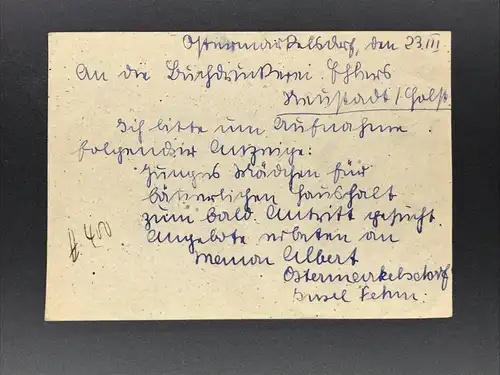 Ostermarkelsdorf, den 23.III
An die Buchdruckerei Ehlers
Neustadt/Holst
Ich bitte um Aufnahme
folgender Anzeige:
Junges Mädchen für
bäuerlichen Haushalt
zum bald. Antritt gesucht.
Angebote erbeten an
Albert
Ostermarkelsdorf
Insel Fehm.
400